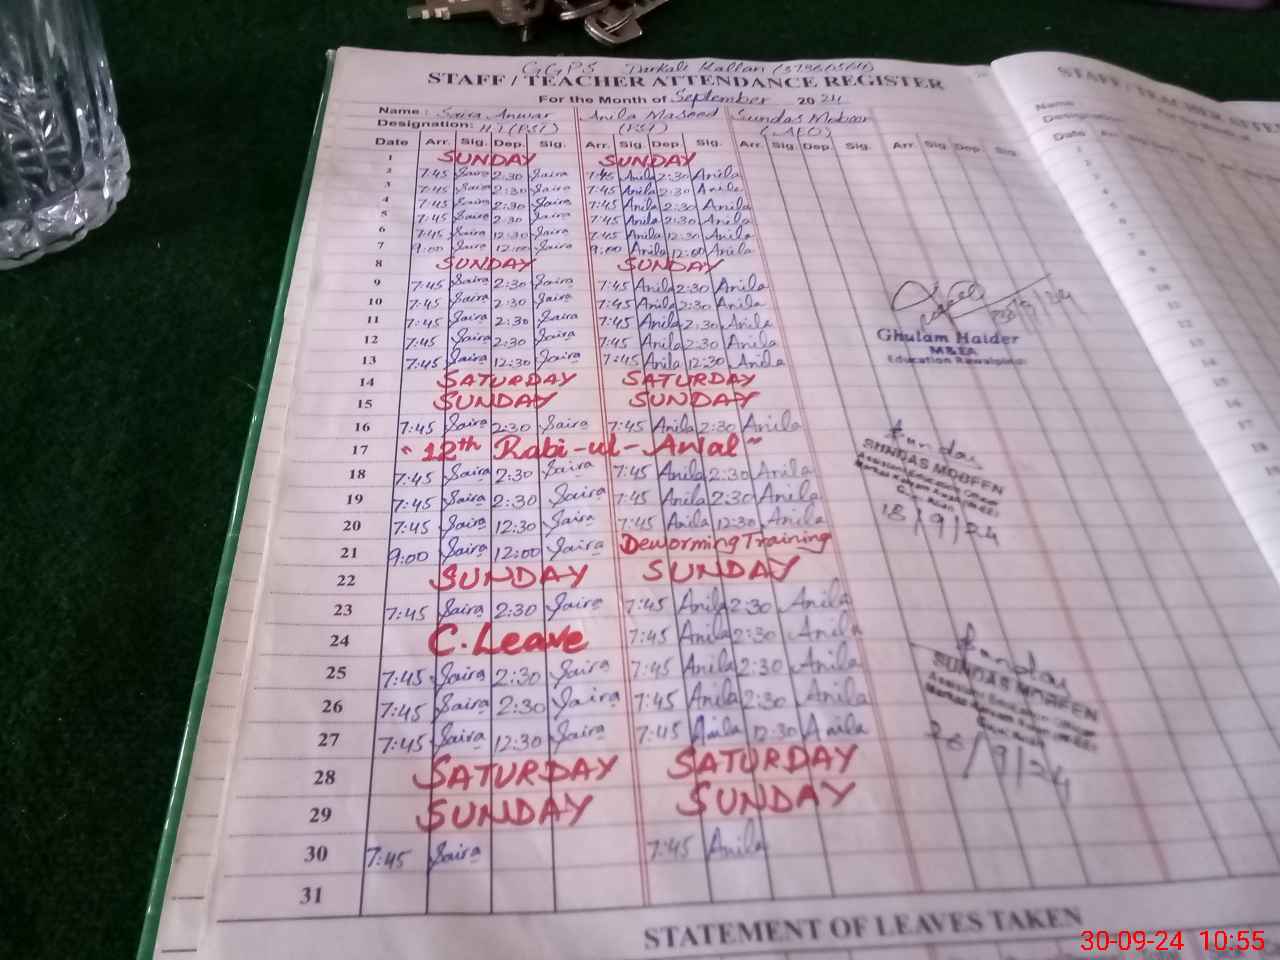 GGPS
STAFF / TEACHER ATTENDANCE REGISTER
For the Month of September 2024
Name : Saira Anwar Anila Maseed Sundas Mobeen
Designation: (PST) (AEO)
Date Arr. Sig. Dep. Sig. Arr. Sig. Dep. Sig. Arr. Sig. Dep. Sig. Arr. Sig. Dep. Sig.
1 SUNDAY SUNDAY
2 7:45 Saira 2:30 Saira 7:45 Anila 2:30 Anila
3 7:45 Saira 2:30 Saira 7:45 Anila 2:30 Anila
4 7:45 Saira 2:30 Saira 7:45 Anila 2:30 Anila
5 7:45 Saira 2:30 Saira 7:45 Anila 2:30 Anila
6 7:45 Saira 12:30 Saira 7:45 Anila 12:30 Anila
7 9:00 Saira 12:00 Saira 9:00 Anila 12:00 Anila
8 SUNDAY SUNDAY
9 7:45 Saira 2:30 Saira 7:45 Anila 2:30 Anila
10 7:45 Saira 2:30 Saira 7:45 Anila 2:30 Anila
11 7:45 Saira 2:30 Saira 7:45 Anila 2:30 Anila
12 7:45 Saira 2:30 Saira 7:45 Anila 2:30 Anila
13 7:45 Saira 12:30 Saira 7:45 Anila 12:30 Anila
14 SATURDAY SATURDAY
15 SUNDAY SUNDAY
16 7:45 Saira 2:30 Saira 7:45 Anila 2:30 Anila
17 "12th Rabi-ul-Awal"
18 7:45 Saira 2:30 Saira 7:45 Anila 2:30 Anila
19 7:45 Saira 2:30 Saira 7:45 Anila 2:30 Anila
20 7:45 Saira 12:30 Saira 7:45 Anila 12:30 Anila
21 9:00 Saira 12:00 Saira Deworming Training
22 SUNDAY SUNDAY
23 7:45 Saira 2:30 Saira 7:45 Anila 2:30 Anila
24 C.Leave 7:45 Anila 2:30 Anila
25 7:45 Saira 2:30 Saira 7:45 Anila 2:30 Anila
26 7:45 Saira 2:30 Saira 7:45 Anila 2:30 Anila
27 7:45 Saira 12:30 Saira 7:45 Anila 12:30 Anila
28 SATURDAY SATURDAY
29 SUNDAY SUNDAY
30 7:45 Saira 7:45 Anila
31
STATEMENT OF LEAVES TAKEN
Ghulam Haider
M&EA
Education Rawalpindi
Sundas
SUNDAS MOBEEN
Assistant Education Officer
18/9/24
Sundas
SUNDAS MOBEEN
Assistant Education Officer
/9/24
STAFF / TEACHER
Name :
Date
30-09-24 10:55